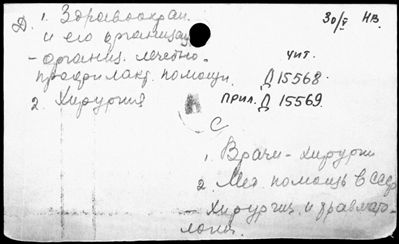 Д. 1. Здравоохран.
и его организац.
- организ. лечебно-
профилакт. помощи.
2. Хирургия
30/V НВ.
чит.
Д 15568.
прил. Д 15569
А
С
1. Врачи - хирурги
2. Мед. помощь в СССР
- Хирургия и травмато-
логия.